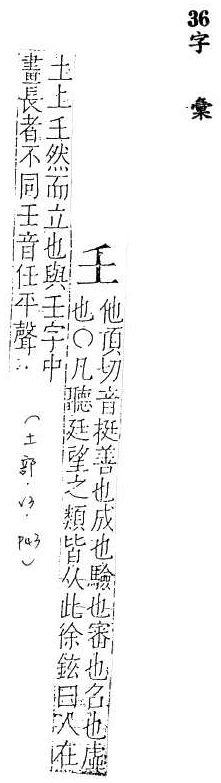 36字 彙
𡈼
他頂切音挺善也成也驗也審也名也虛
也○凡聽廷望之類皆从此徐鉉曰人在
土上𡈼然而立也與壬字中
畫長者不同壬音任平聲
(土部.V3.P43)